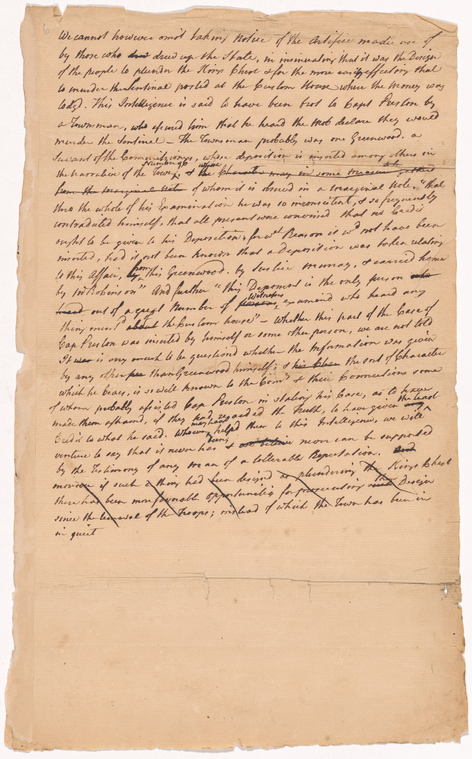 We cannot however omit taking Notice of the Artifice made use of
by those who drew up the State, in insinuating that it was the Design
of the people to plunder the Kings Chest & for the more easily effecting that
to murder the Sentinel posted at the Custom House where the money was
lodg'd. This Intelligence is said to have been bro't to Capt Preston by
a Townsman, who assured him that he heard the Mob declare they would
murder the Sentinel — The Townsman probably was one Greenwood. a
Servant of the Commissioners, whose deposition is inserted among others in
the Narrative of the Town, &
of whom it is observed in a marginal Note, "That
thro the whole of his Examination he was so inconsistent, & so frequently
contradicted himself, that all present were convinced that no Credit
ought to be given to his Deposition, for wch Reason it wd not have been
inserted, had it not been known that a deposition was taken relating
to this Affair, from this Greenwood. by Justice Murray, & carried home
by Mr Robinson" And further "this Deponent is the only person
out of a great Number of Witnesses examined who heard any
thing mention'd of the Custom house" — Whether this part of the Case of
Cap Preston was inserted by himself or some other person, we are not told
It is very much to be questioned whether the Information was given
by any other than Greenwood himself; & the sort of Character
which he bears, is so well known to the Comrs & their Connections some
of whom probably assisted Cap Preston in stating his Case, as to have
made them ashamed, if they regarded the Truth, to have given the least
Credit to what he said. Whoever may have helped them to this Intelligence, we will
venture to say that it never has been & never can be supported
by the Testimony of any man of a tollerable Reputation.
had been design'd of plundering the Kings Chest
there has been more favorable opportunities for prosecuting the Design
since the removal of the Troops; instead of which the Town has been in
in quiet